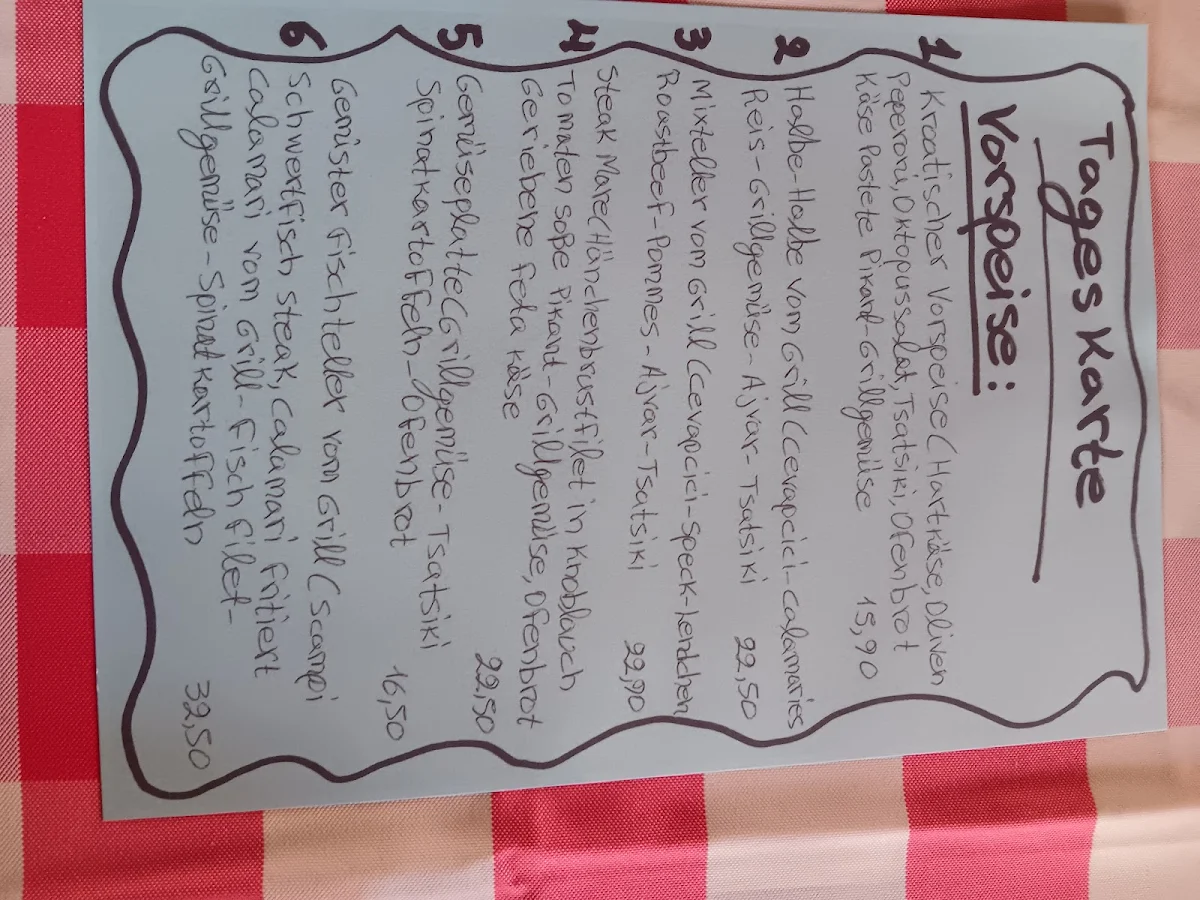 Tages Karte
Vorspeise:
1 Kroatischer Vorspeise (Hartkäse, Oliven
Peperoni, Oktopussalat, Tsatsiki, Ofenbrot
Käse Pastete Pikant-Grillgemüse 15,90
2 Halbe-Halbe vom Grill (Cevapcici-Calamaries
Reis-Grillgemüse-Ajvar-Tsatsiki 22,50
3 Mixteller vom Grill (Cevapcici-Speck-Hendchen
Roastbeef-Pommes-Ajvar-Tsatsiki 22,90
Steak Mare (Hänchenbrustfilet in Knoblauch
4 Tomaten soße Pikant-Grillgemüse, Ofenbrot
Geriebene Feta Käse 22,50
5 Gemüseplatte (Grillgemüse-Tsatsiki
Spinatkartoffeln-Ofenbrot 16,50
Gemister Fischteller vom Grill (Scampi
6 Schwertfisch Steak, Calamari fritiert
Calamari vom Grill-Fisch filet-
Grillgemüse-Spinat Kartoffeln 32,50